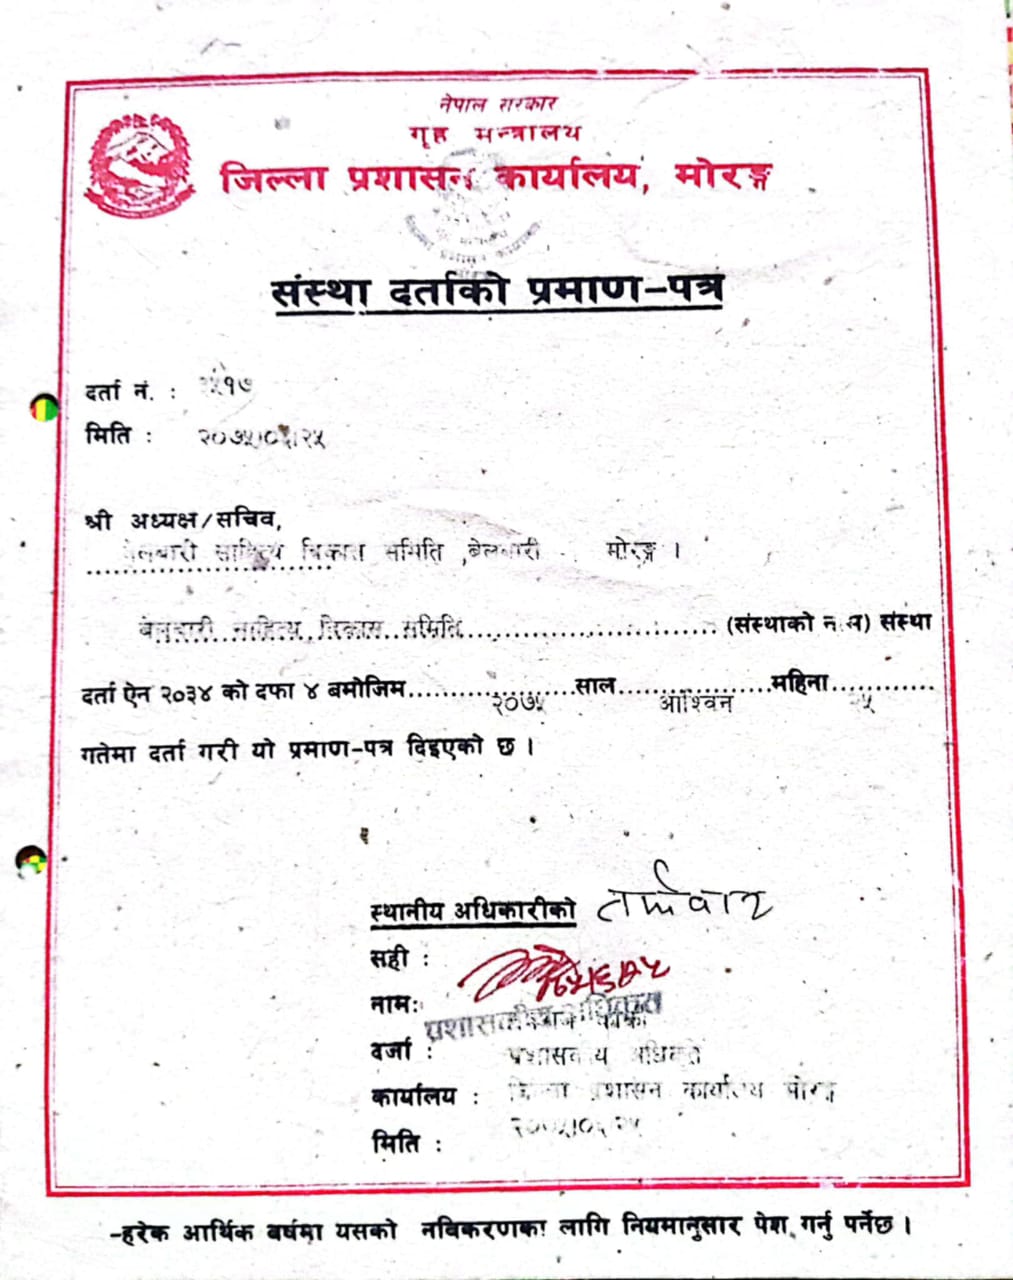 नेपाल सरकार
गृह मन्त्रालय
जिल्ला प्रशासन कार्यालय, मोरङ्ग
संस्था दर्ताको प्रमाण-पत्र
दर्ता नं. :
मिति : २०७५।०६।२५
श्री अध्यक्ष/सचिव,
बेलबारी साहित्य विकास समिति ,बेलबारी मोरङ्ग ।
बेलबारी साहित्य विकास समिति.............................. (संस्थाको नाम) संस्था
दर्ता ऐन २०३४ को दफा ४ बमोजिम....................साल..................महिना............
२०७५ आश्विन २५
गतेमा दर्ता गरी यो प्रमाण-पत्र दिइएको छ ।
स्थानीय अधिकारीको
सही :
नामः
प्रशासकीय अधिकृत
दर्जा : प्रशासकीय अधिकृत
कार्यालय : जिल्ला प्रशासन कार्यालय मोरङ्ग
मिति : २०७५।०६।२५
-हरेक आर्थिक बर्षमा यसको नविकरणका लागि नियमानुसार पेश गर्नु पर्नेछ ।